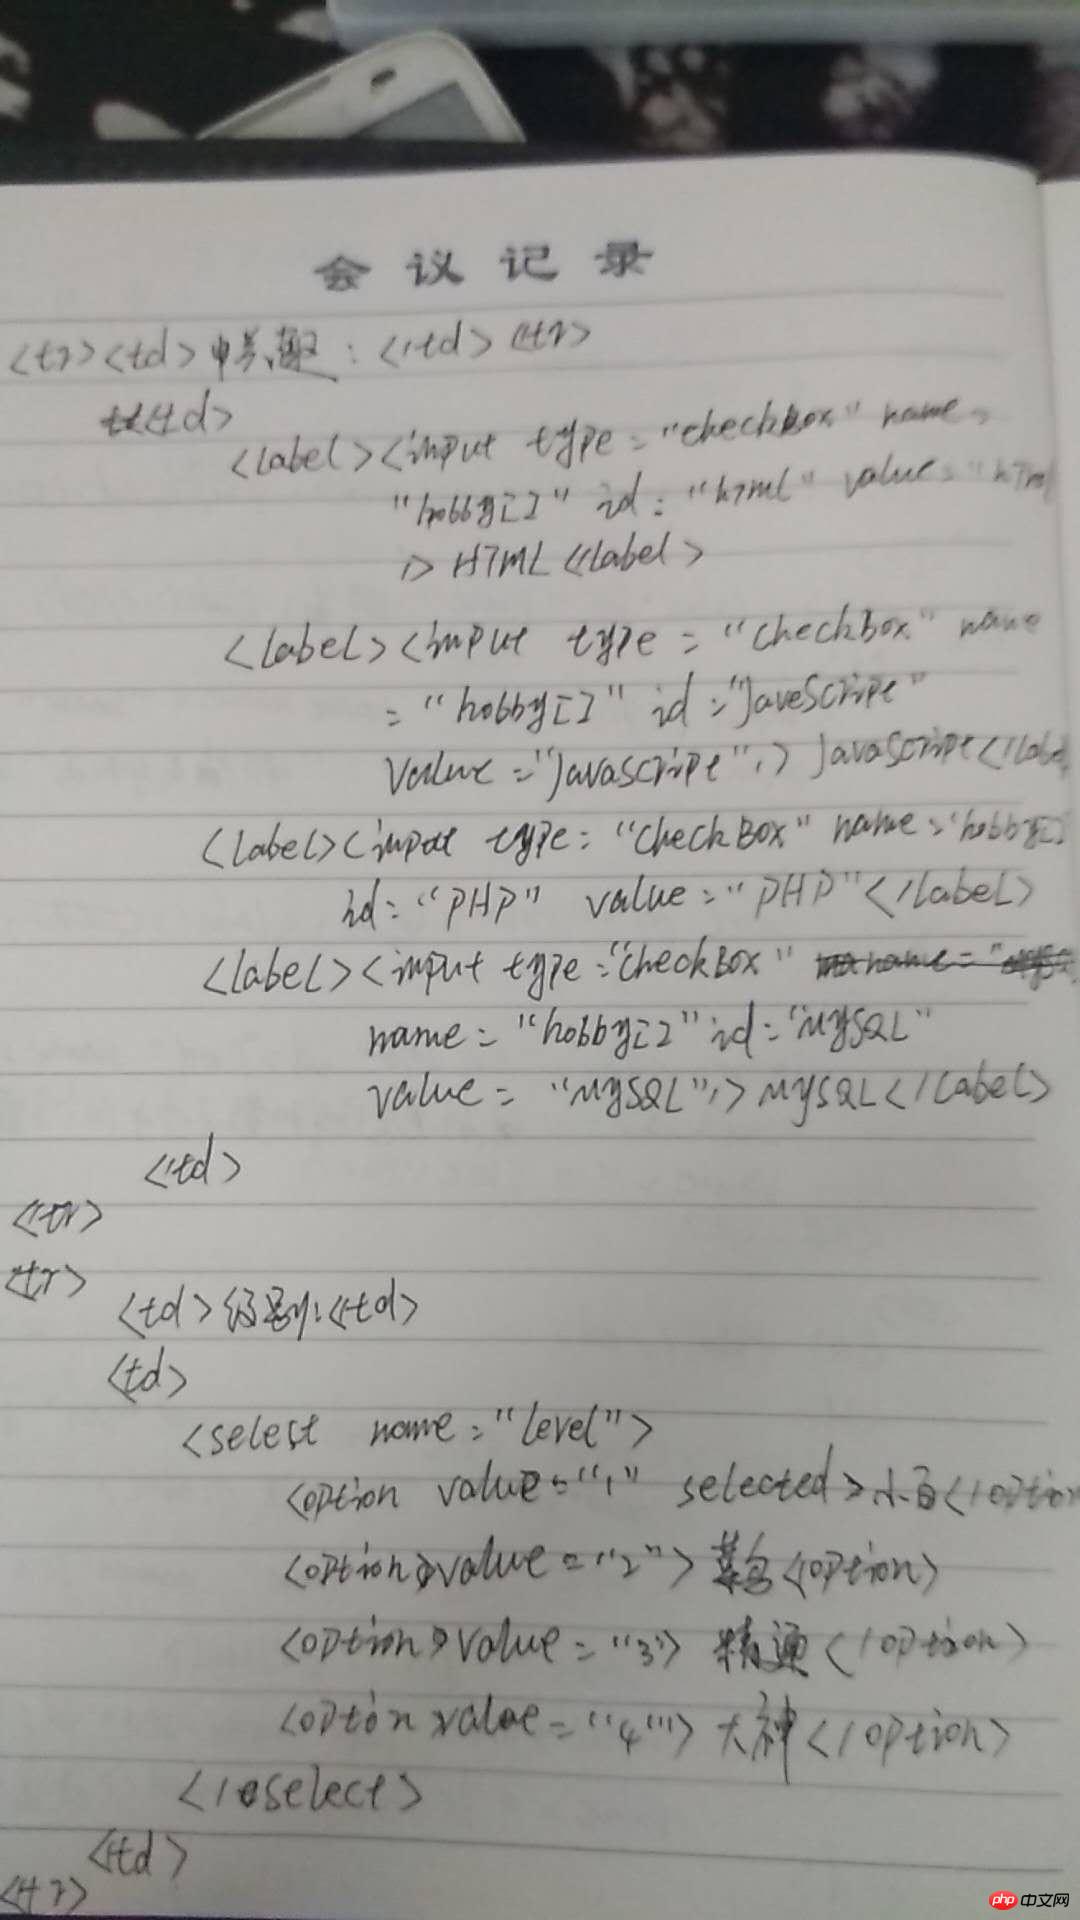 会议记录
<tr><td>兴趣:</td></tr>
<td>
<label><input type="checkbox" name=
"hobby[]" id="html" value="html
/> HTML </label>
<label><input type="checkbox" name
="hobby[]" id="JaveScript"
value="JavaScript"/> JavaScript</label
<label><input type="checkBox" name="hobby[]
id="PHP" value="PHP"</label>
<label><input type="checkBox"
name="hobby[]" id="MySQL"
value="MySQL"/> MySQL</label>
</td>
</tr>
<tr>
<td>级别:</td>
<td>
<select name="level">
<option value="1" selected>小白</option
<option value="2">菜鸟</option>
<option value="3">精通</option>
<option value="4">大神</option>
</select>
</td>
</tr>
php 中文网